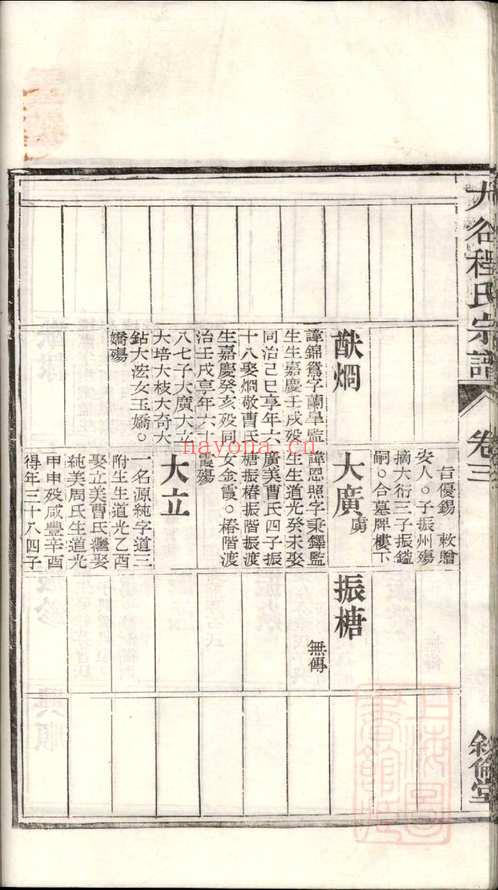 程氏宗譜
卷三
敘倫堂
旨優錫 敕贈
安人。子振州殤
摘大衍三子振鑑
嗣。合墓牌樓下
猷烱
諱錦鴛字蘭皐監
生生嘉慶壬戌殁
同治己巳享年六
十八娶烱敬曹氏
生嘉慶癸亥殁同
治壬戌享年六十
八七子大廣大立
大培大枝大奇大
鉆大浤女玉嬌。
嬌殤
大廣
虏
諱恩照字秉鐸監
生生道光癸未娶
廣美曹氏四子振
榶振椿振階振渡
女金霞。椿階渡
霞殤
大立
一名源純字道三
附生生道光乙酉
娶立美曹氏繼娶
純美周氏生道光
甲申殁咸豐辛酉
得年三十八四子
振榶
無傳
nayona.cn